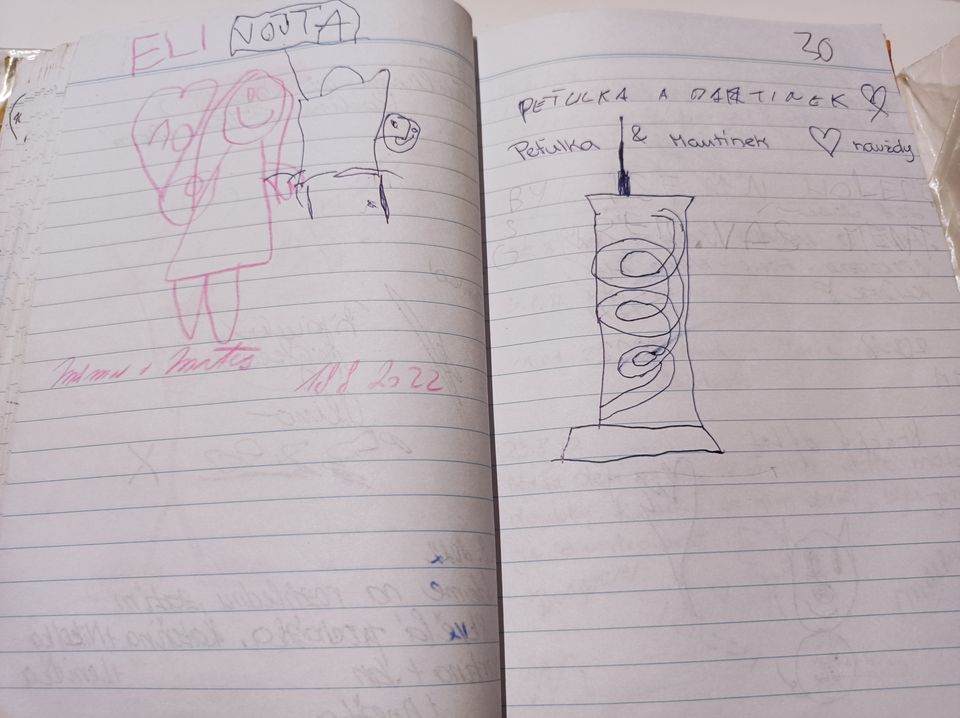 ELI VOJTA
18 8 2022
30
PEŤULKA A MARTINEK
Peťulka & Martinek navždy